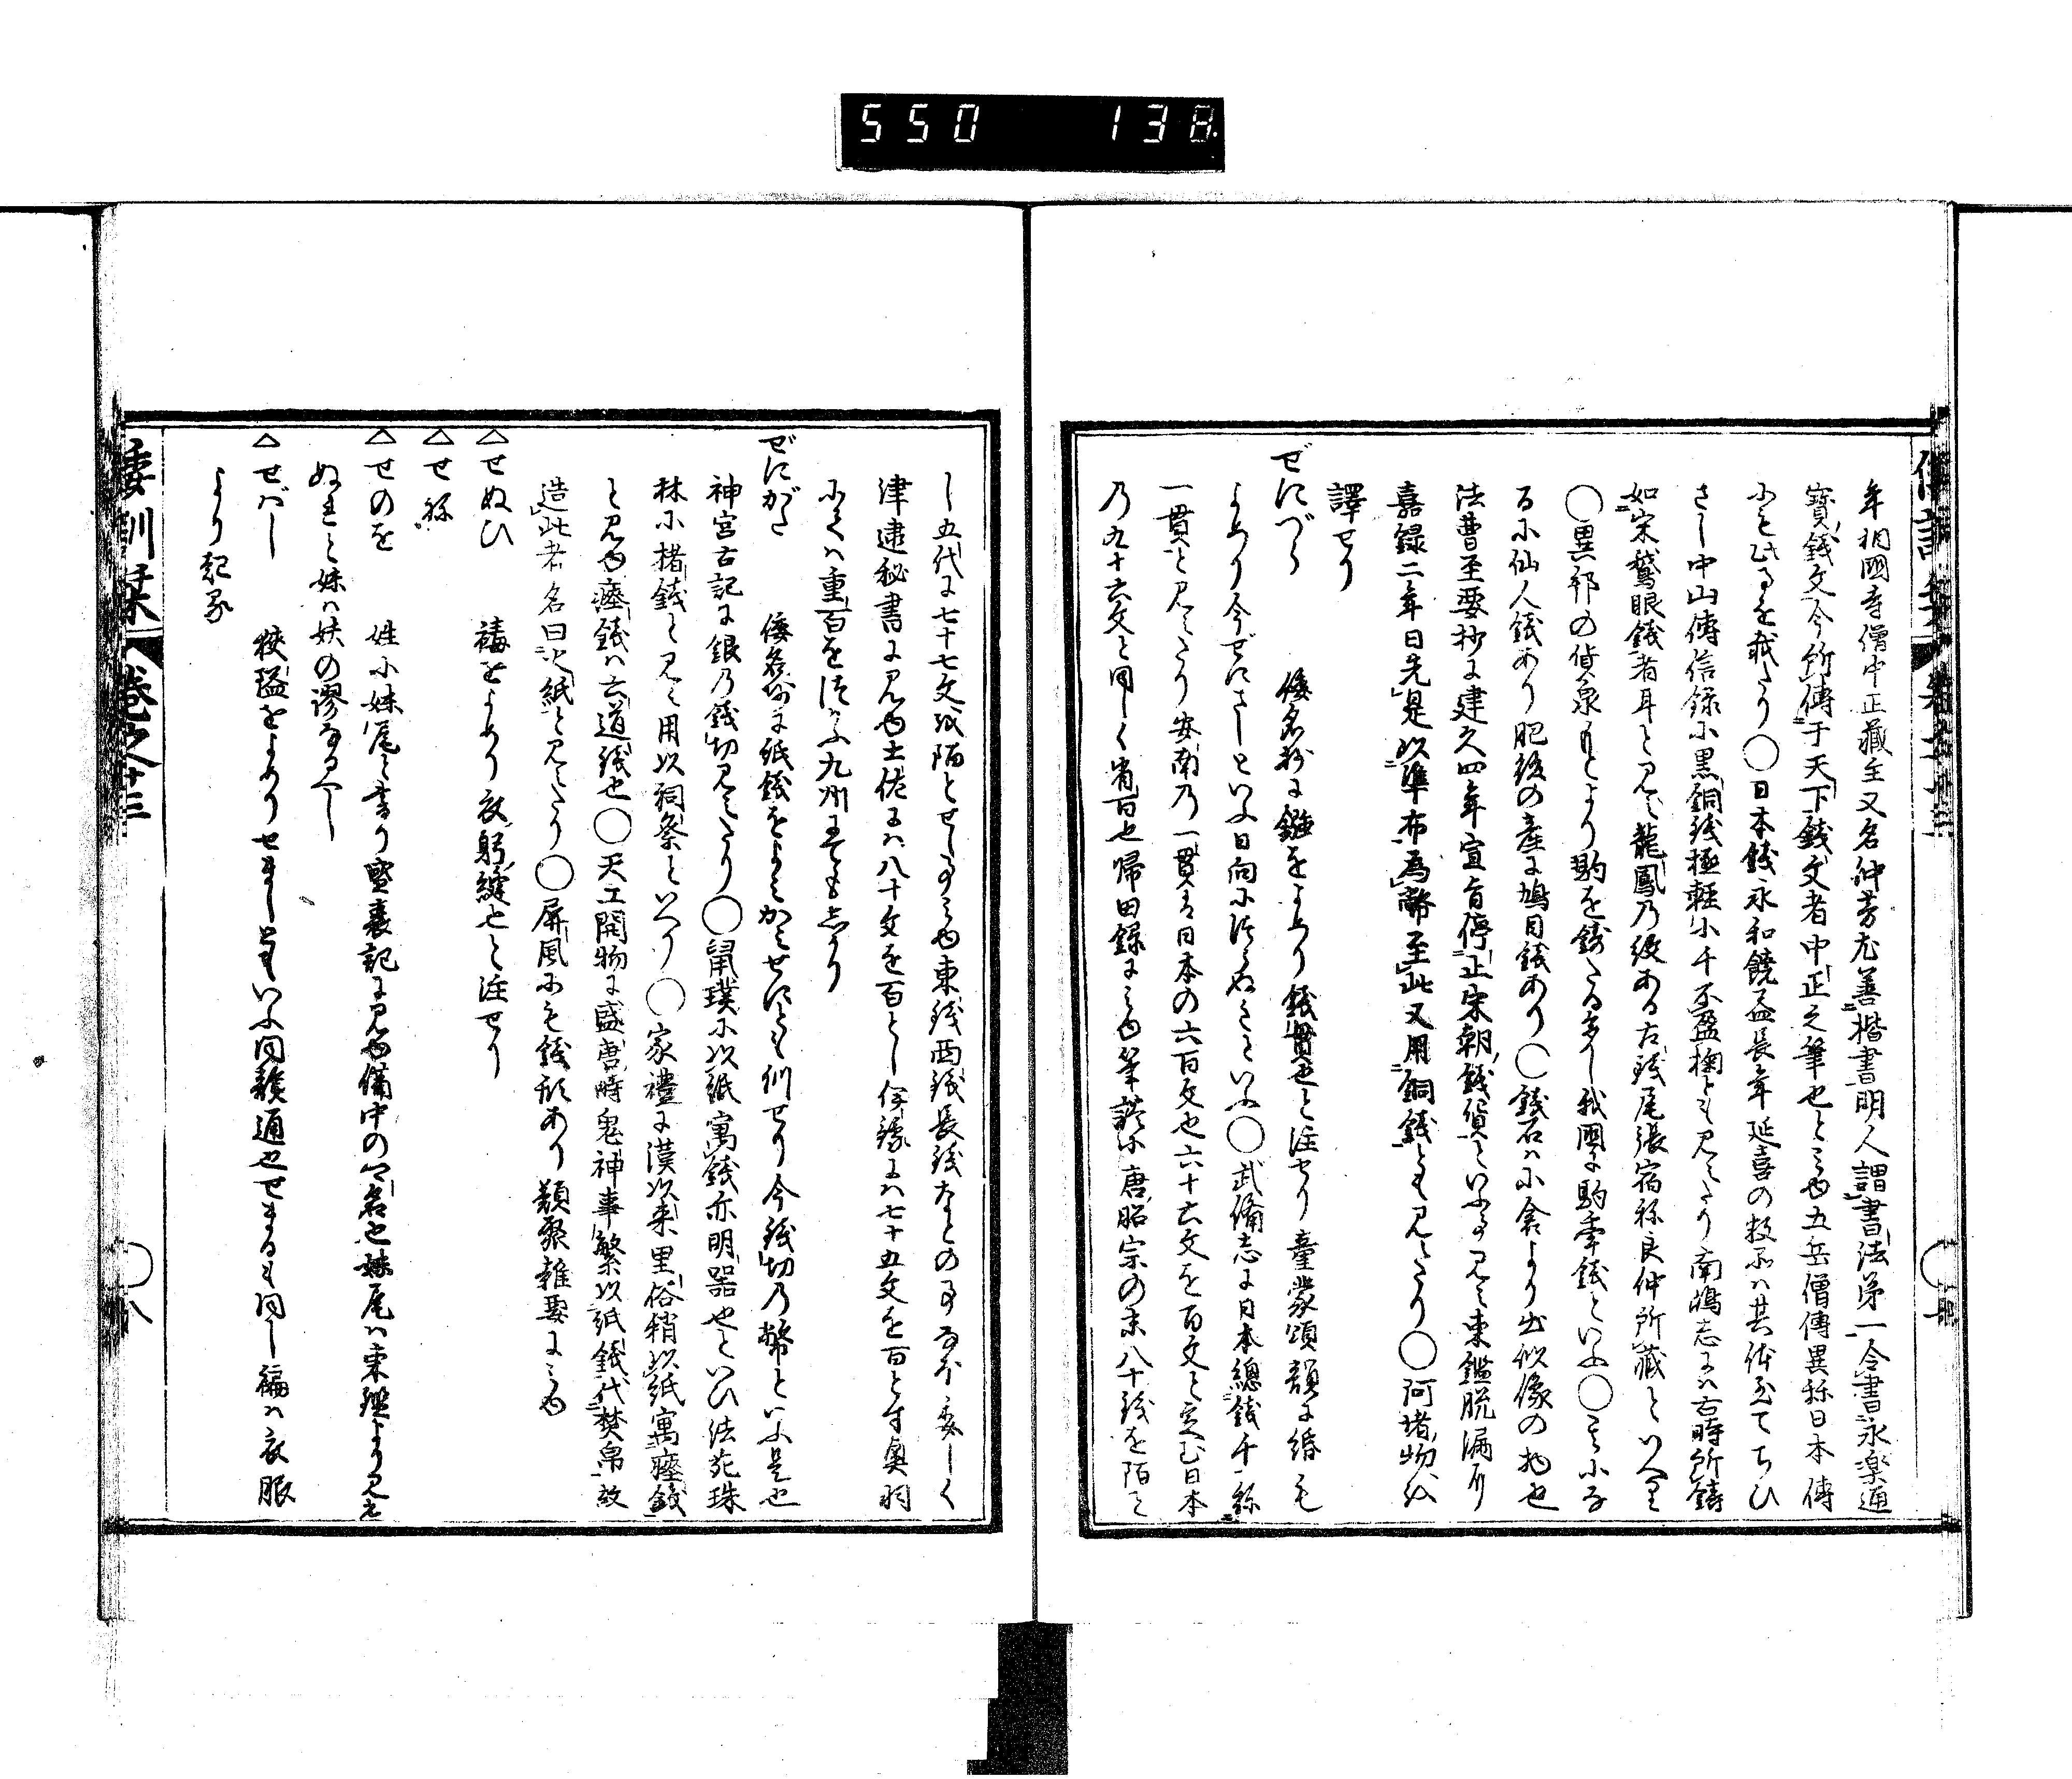 550 138
年相國寺僧中正藏主又名仲芳尤善楷書明人謂書法第一令書永樂通
寶錢文今所傳于天下錢文者中正之筆也とみゆ五岳僧傳異称日本傳
にも此事を載たり○日本錢承和饒益長年延喜の数品ハ其俤ありてちひ
さし中山傳信録に黒銅錢極輕小千不盈掬とも見えたり南嶋志にハ古時所鑄
如宋鵞眼錢者耳と見ゆ龍鳳乃紋ある古錢尾張宿祢良仲所藏といへり
○異邦の貨泉もとより駒を鋳たるあり我國に駒牽錢といふ○こゝにな
るに仙人錢あり肥後の産に鳩目錢あり○錢石ハ小倉より出似像の物也
法曹至要抄に建久四年宣旨停止宋朝錢貨といふ事見ゆ東鑑脱漏に
嘉録二年日先是以準布為幣至此又用銅錢とも見えたり○阿堵物ハ
譯せり
ぜにづら 倭名抄に鏹をよめり錢貫也と注せり童蒙頌韻に緡も
よめり今ぜにさしといふ日向につらぬきといふ○武備志に日本總錢千緡
一貫と見えたり安南乃一貫ハ日本の六百文也六十六文を百文と定む日本
乃九十六文と同しく省百也帰田録にみゆ筆談に唐昭宗の末八十錢を陌と
し五代に七十七文を陌とせし事みゆ東錢西錢長錢なとの事なほ委しく
津逮秘書に見ゆ土佐にハ八十文を百とし伊豫にハ七十五文を百とす奥羽
にてハ重百をつかふ九州にても志かり
ぜにがた 倭名抄に紙錢をよミかミせにとも訓せり今錢切乃幣といふ是也
神宮古記に銀乃錢切見えたり○鼠璞に以紙寓錢亦明器也といひ法苑珠
林に楮錢と見え用以祠祭といへり○家禮に漢以来里俗稍以紙寓瘞錢
と見ゆ瘞錢ハ六道錢也○天工開物に盛唐時鬼神事繁以紙錢代焚帛故
造此者名曰火紙と見えたり○屏風にも錢形あり類聚雜要にみゆ
△せぬひ 褠をよめり衣躬縫也と注せり
△せ祢
△せのを 姓に妹尾と書り盛衰記に見ゆ備中の地名也妹尾ハ東鑑より見え
ぬきと妹ハ妋の謬なるへし
△せばし 狹隘をよめりせましともいふ同韻通也せまるも同し褊ハ衣服
より起る
倭訓栞 巻之十三 ○八